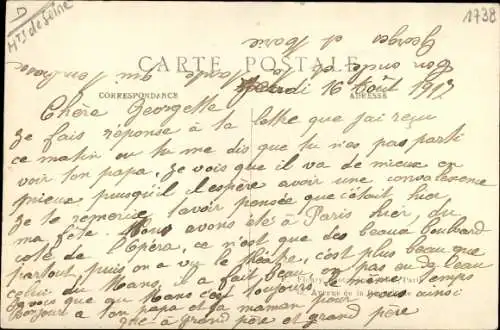 D
Hts de Seine
1738
CARTE POSTALE
CORRESPONDANCE
ADRESSE
Jeudi 16 Août 1917
Chère Georgette
Je fais réponse à ta lettre que j'ai reçu
ce matin ou tu me dis que tu n'es pas parti
voir ton papa, je vois que il va de mieux en
mieux puisqu'il espère avoir une convalescence
Je te remercie d'avoir pensée que c'était hier
ma fête. Nous avons été à Paris hier, du
coté de l'Opéra, ce n'est que des beaux boulvard
partout, puis on a vu le théâtre, c'est plus beau que
celui du Mans, il a fait beau, on pas eu de l'eau
Je vois que au Mans c'est toujours le même temps
Bonjour à ton papa et ta maman pour nous ainsi
que à grand père et grand père
Ton oncle et Ta Tante qui t'embrasse
Georges et Marie